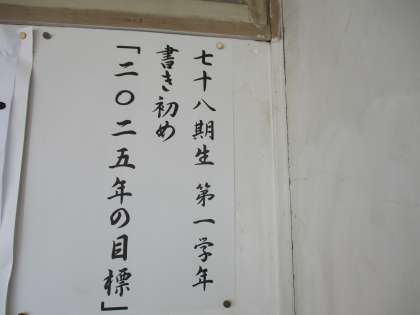 七十八期生 第一学年
書き初め
「二〇二五年の目標」